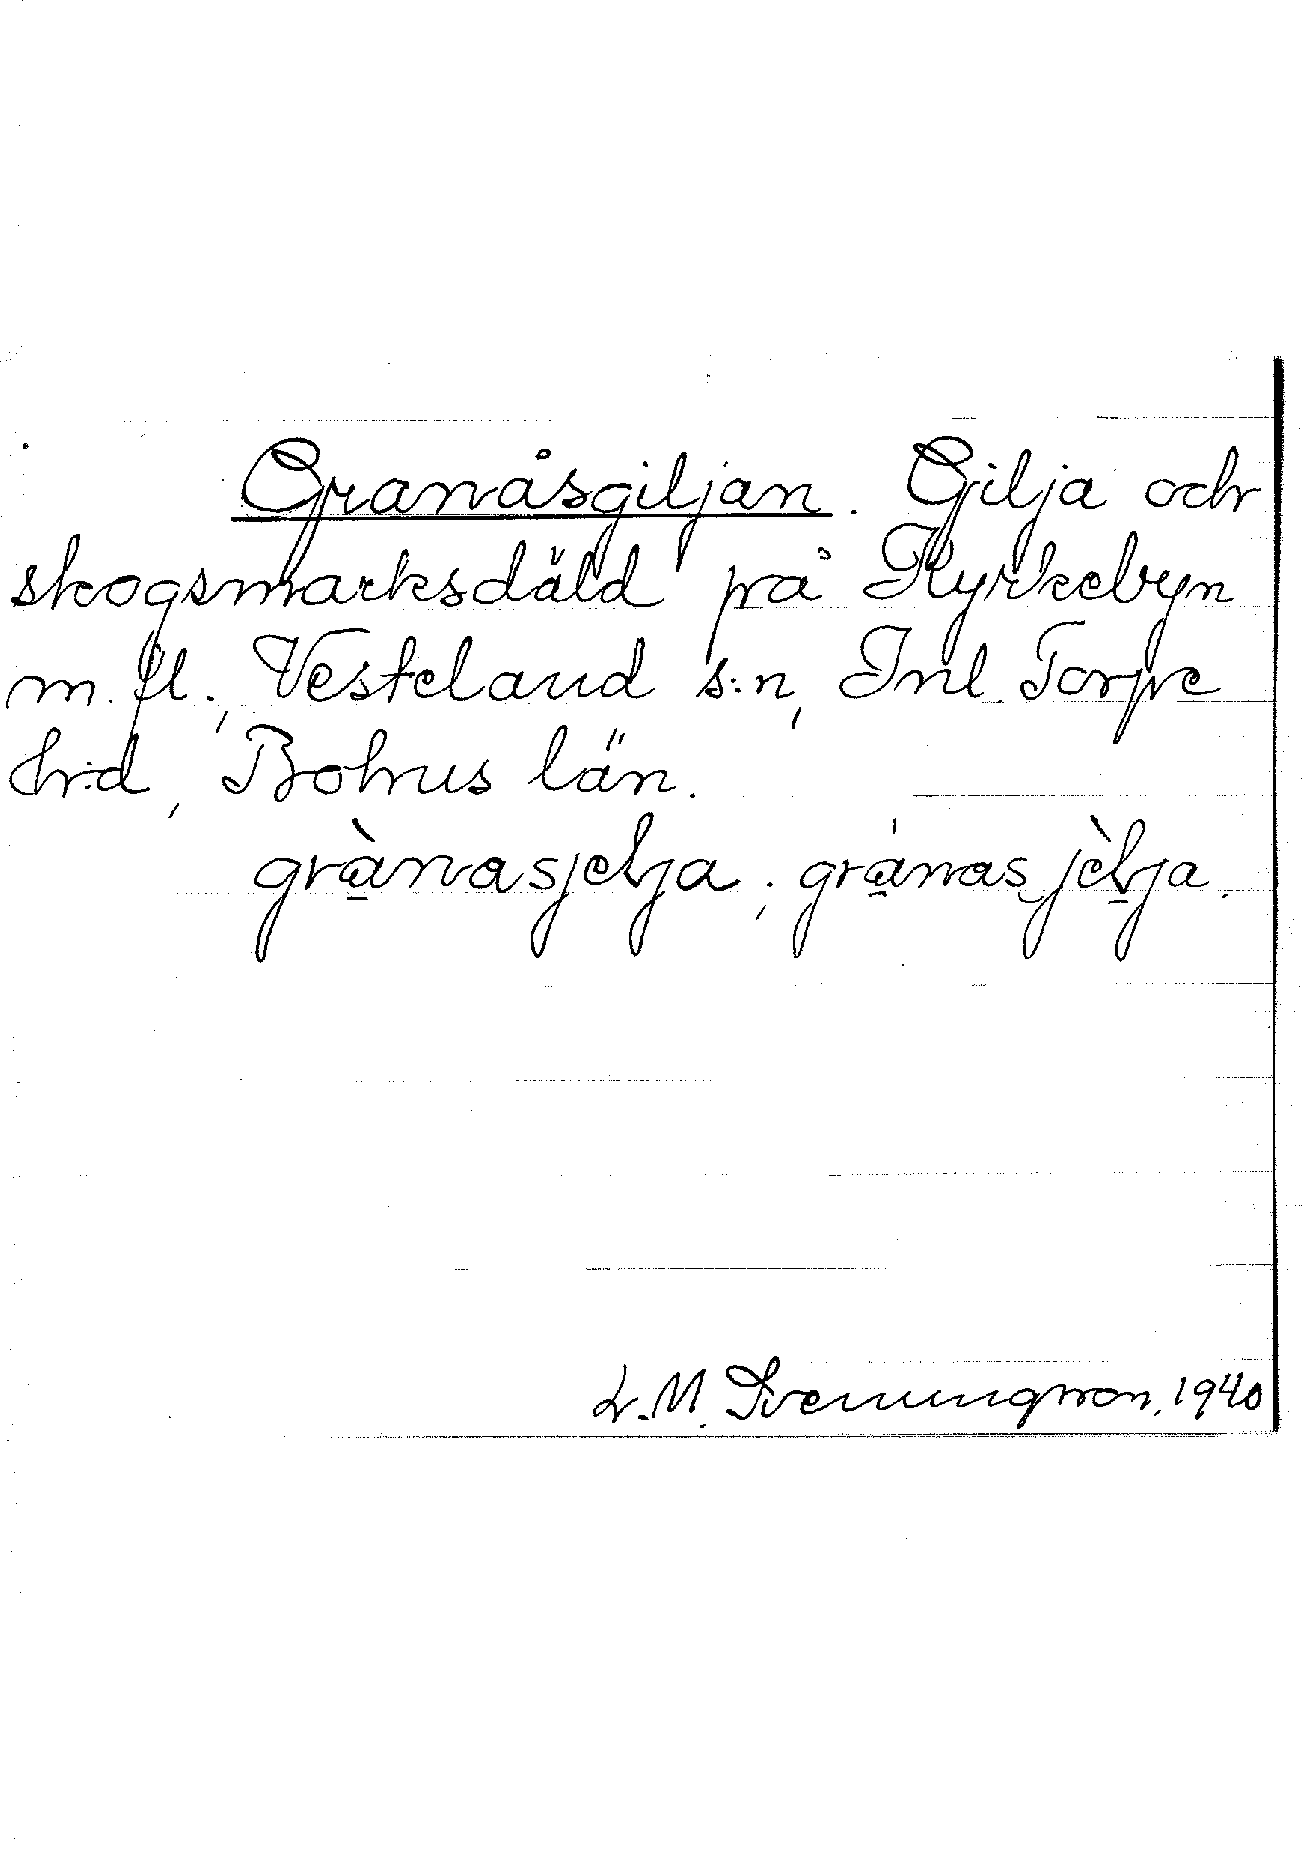 Granåsgiljan. Gilja och
skogsmarksdäld på Kyrkebyn
m. fl., Vesteland s:n, Inl. Torpe
hr:d, Bohus län.
grànasjelja; gránasjèlja.
L. M. Svenungsson, 1940